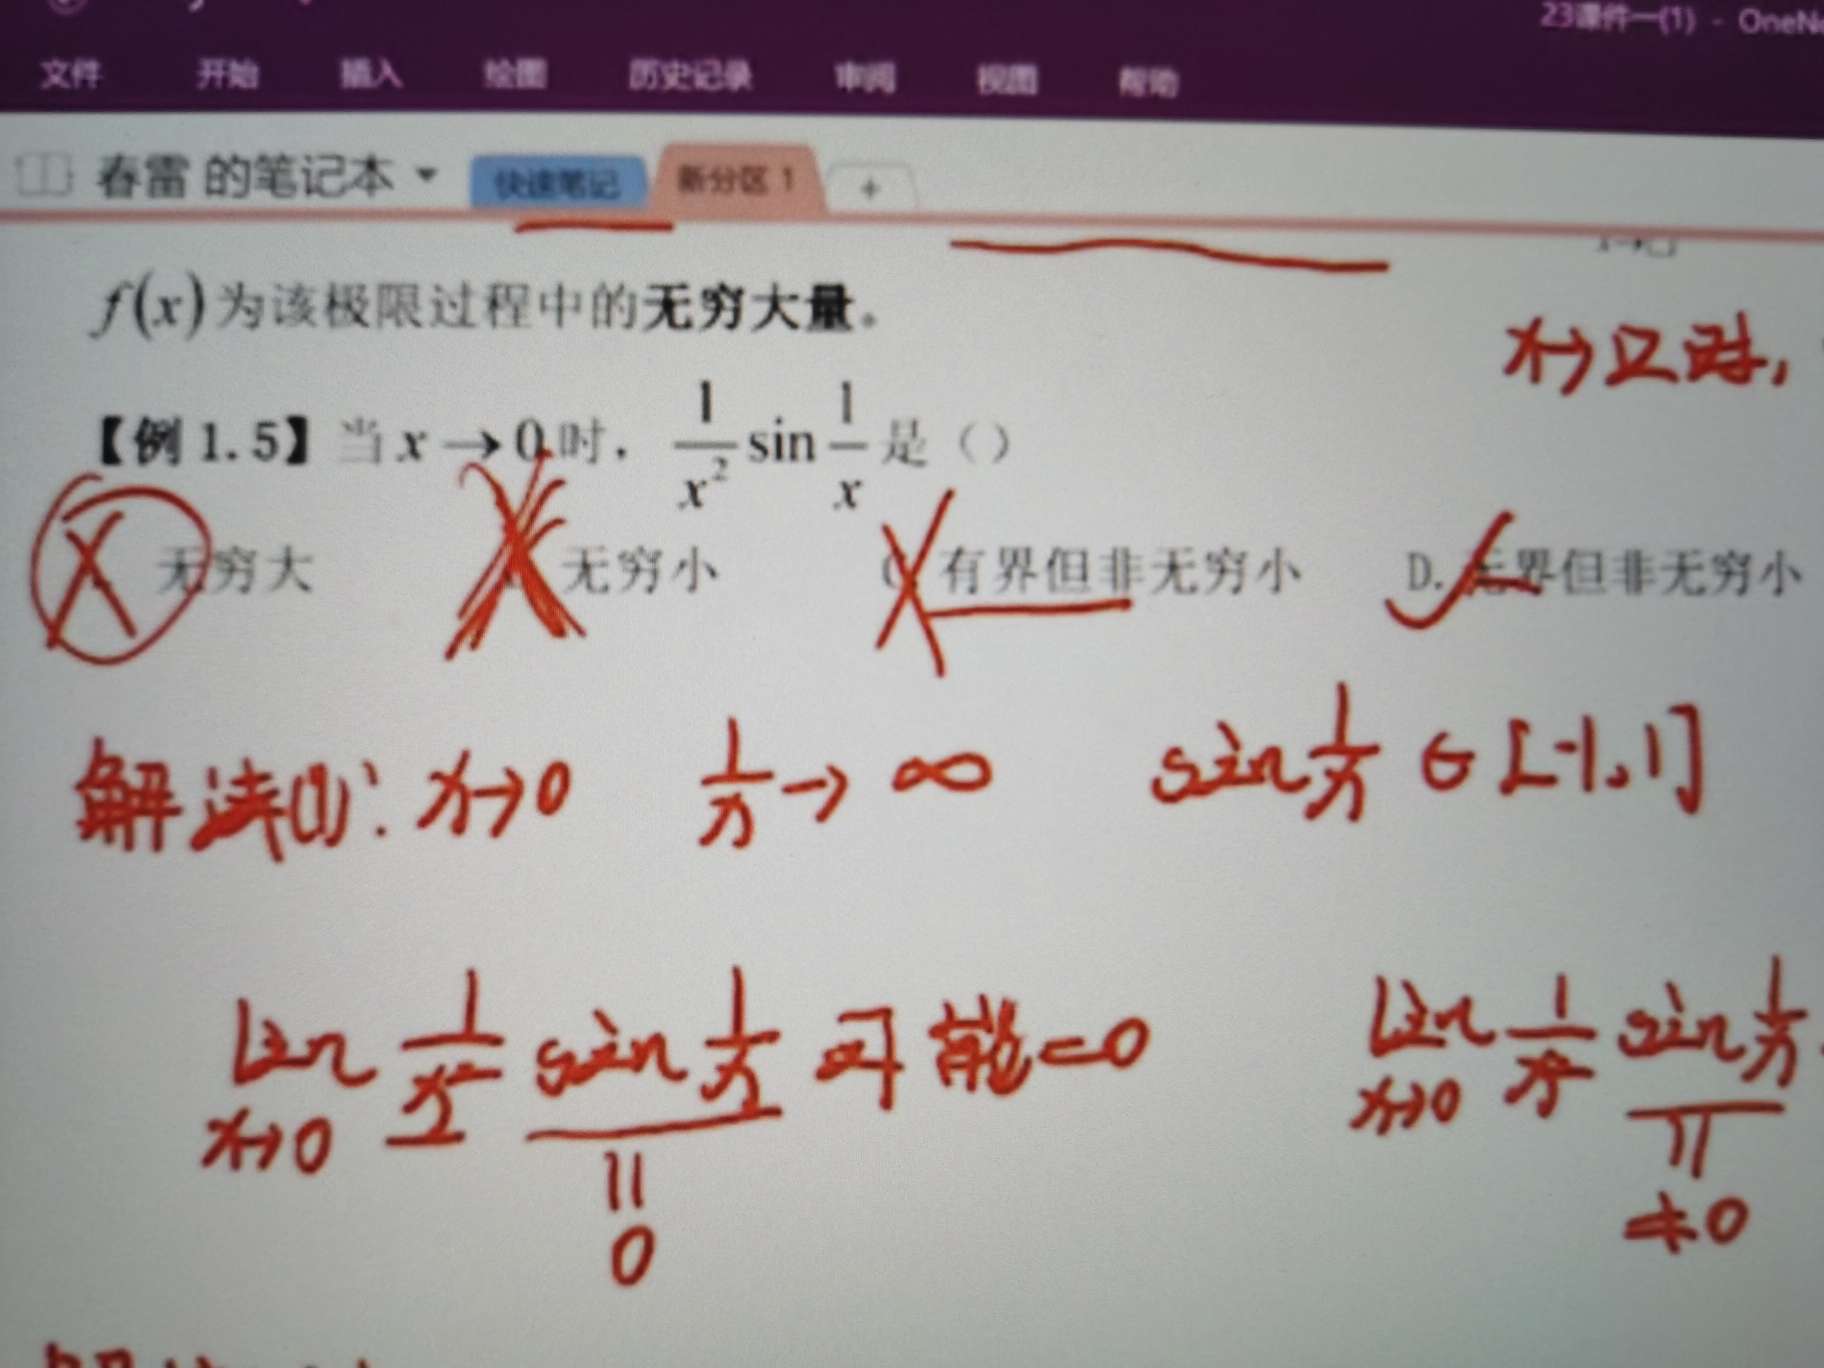 23课件一(1) - OneNo
文件 开始 插入 绘图 历史记录 审阅 视图 帮助
春雷 的笔记本 快速笔记 新分区 1 +
f(x)为该极限过程中的无穷大量。
x→ 时,
【例 1.5】当 x→0 时, 1/x² sin 1/x 是()
无穷大 无穷小 C. 有界但非无穷小 D. 无界但非无穷小
解法(1): x→0 1/x → ∞ sin 1/x ∈ [-1,1]
lim x→0 1/x² sin 1/x 可能=0 lim x→0 1/x² sin 1/x
= 0 ≠0